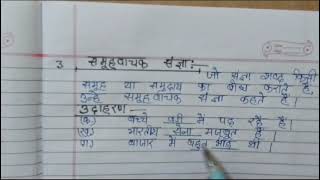 3 समूहवाचक संज्ञा:-
जो संज्ञा शब्द किसी
समूह या समुदाय का बोध कराते हैं,
उन्हें समूहवाचक संज्ञा कहते हैं।
उदाहरण-
(क) बच्चे में पढ़ रहे हैं।
(ख) भारतीय सेना मजबूत है।
(ग) बाजार में बहुत भीड़ थी।